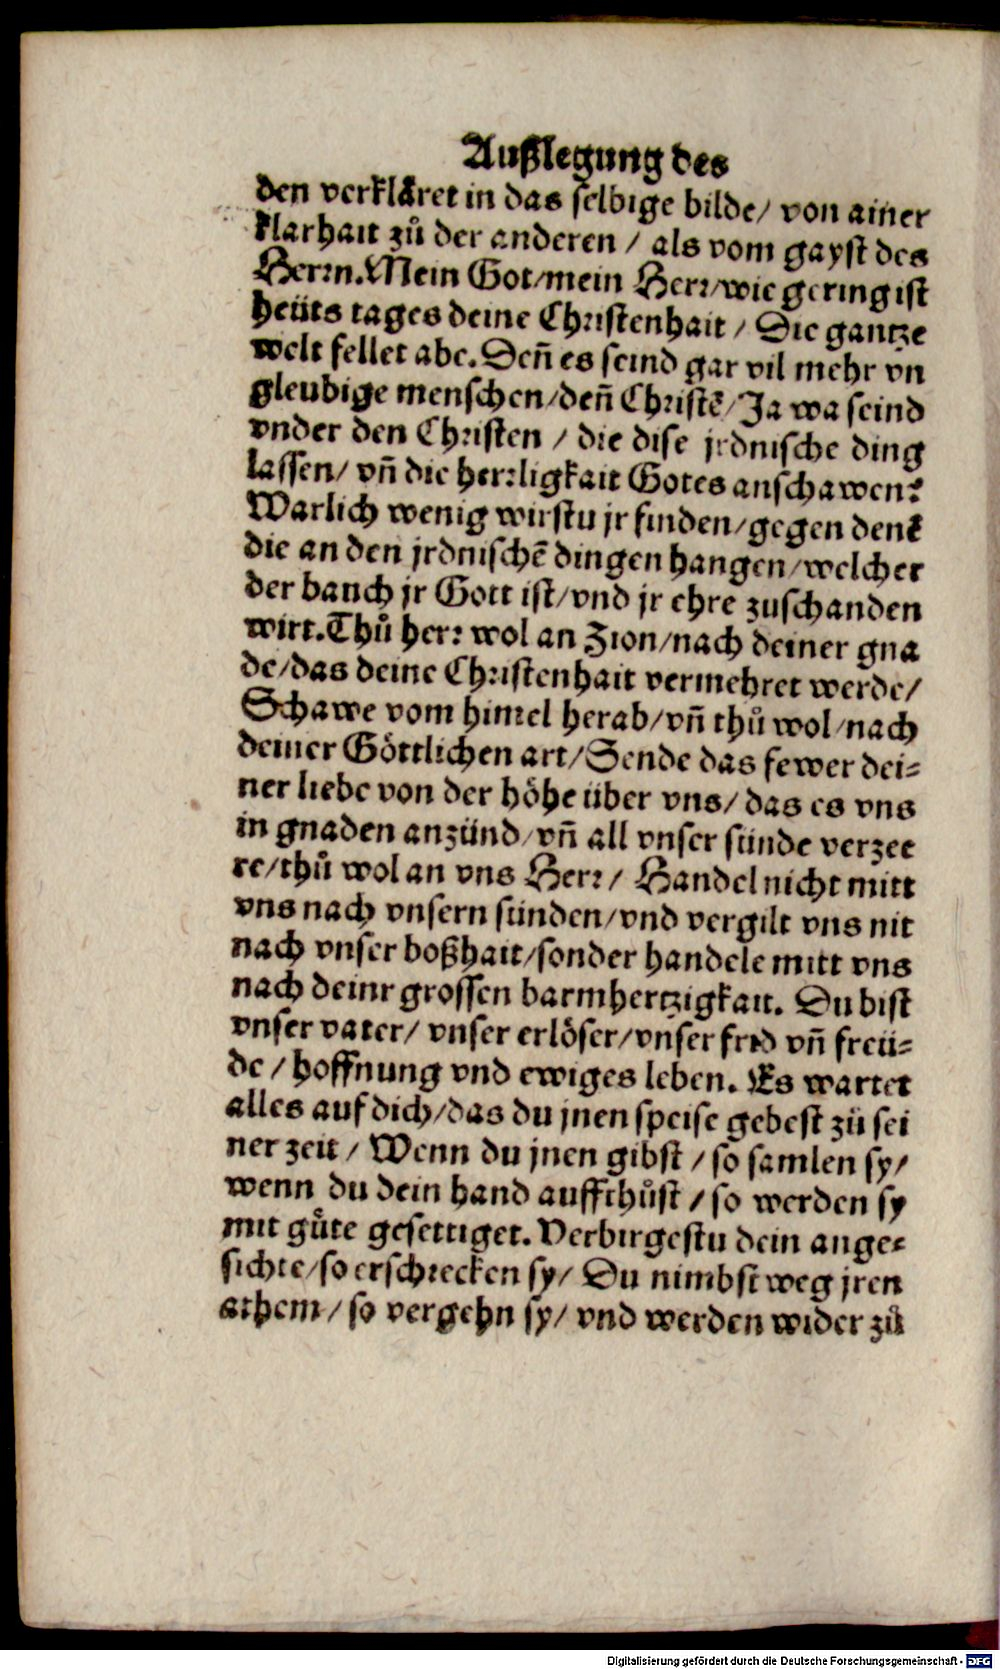 Außlegung des
den verkläret in das selbige bilde/ von ainer
klarhait zů der anderen / als vom gayst des
Herrn. Mein Got/mein Herr/wie gering ist
heüts tages deine Christenhait / Die gantze
welt fellet abe. Deñ es seind gar vil mehr vn
gleubige menschen/deñ Christẽ/Ja wa seind
vnder den Christen / die dise jrdnische ding
lassen/ vñ die herrligkait Gotes anschawen?
Warlich wenig wirstu jr finden/gegen denẽ
die an den jrdnischẽ dingen hangen/welcher
der bauch jr Gott ist/vnd jr ehre zuschanden
wirt. Thů herr wol an Zion/nach deiner gna
de/das deine Christenhait vermehret werde/
Schawe vom himel herab/vñ thů wol/nach
deiner Göttlichen art/Sende das fewer dei=
ner liebe von der höhe über vns/ das es vns
in gnaden anzünd/vñ all vnser sünde verzee
re/thů wol an vns Herr/ Handel nicht mitt
vns nach vnsern sünden/vnd vergilt vns nit
nach vnser boßhait/sonder handele mitt vns
nach deinr grossen barmhertzigkait. Du bist
vnser vater/ vnser erlöser/vnser frid vñ freü=
de / hoffnung vnd ewiges leben. Es wartet
alles auf dich/das du jnen speise gebest zů sei
ner zeit / Wenn du jnen gibst / so samlen sy/
wenn du dein hand auffthůst / so werden sy
mit gůte gesettiget. Verbirgestu dein ange=
sichte/so erschrecken sy/ Du nimbst weg jren
athem/ so vergehn sy/ vnd werden wider zů
Digitalisierung gefördert durch die Deutsche Forschungsgemeinschaft - DFG